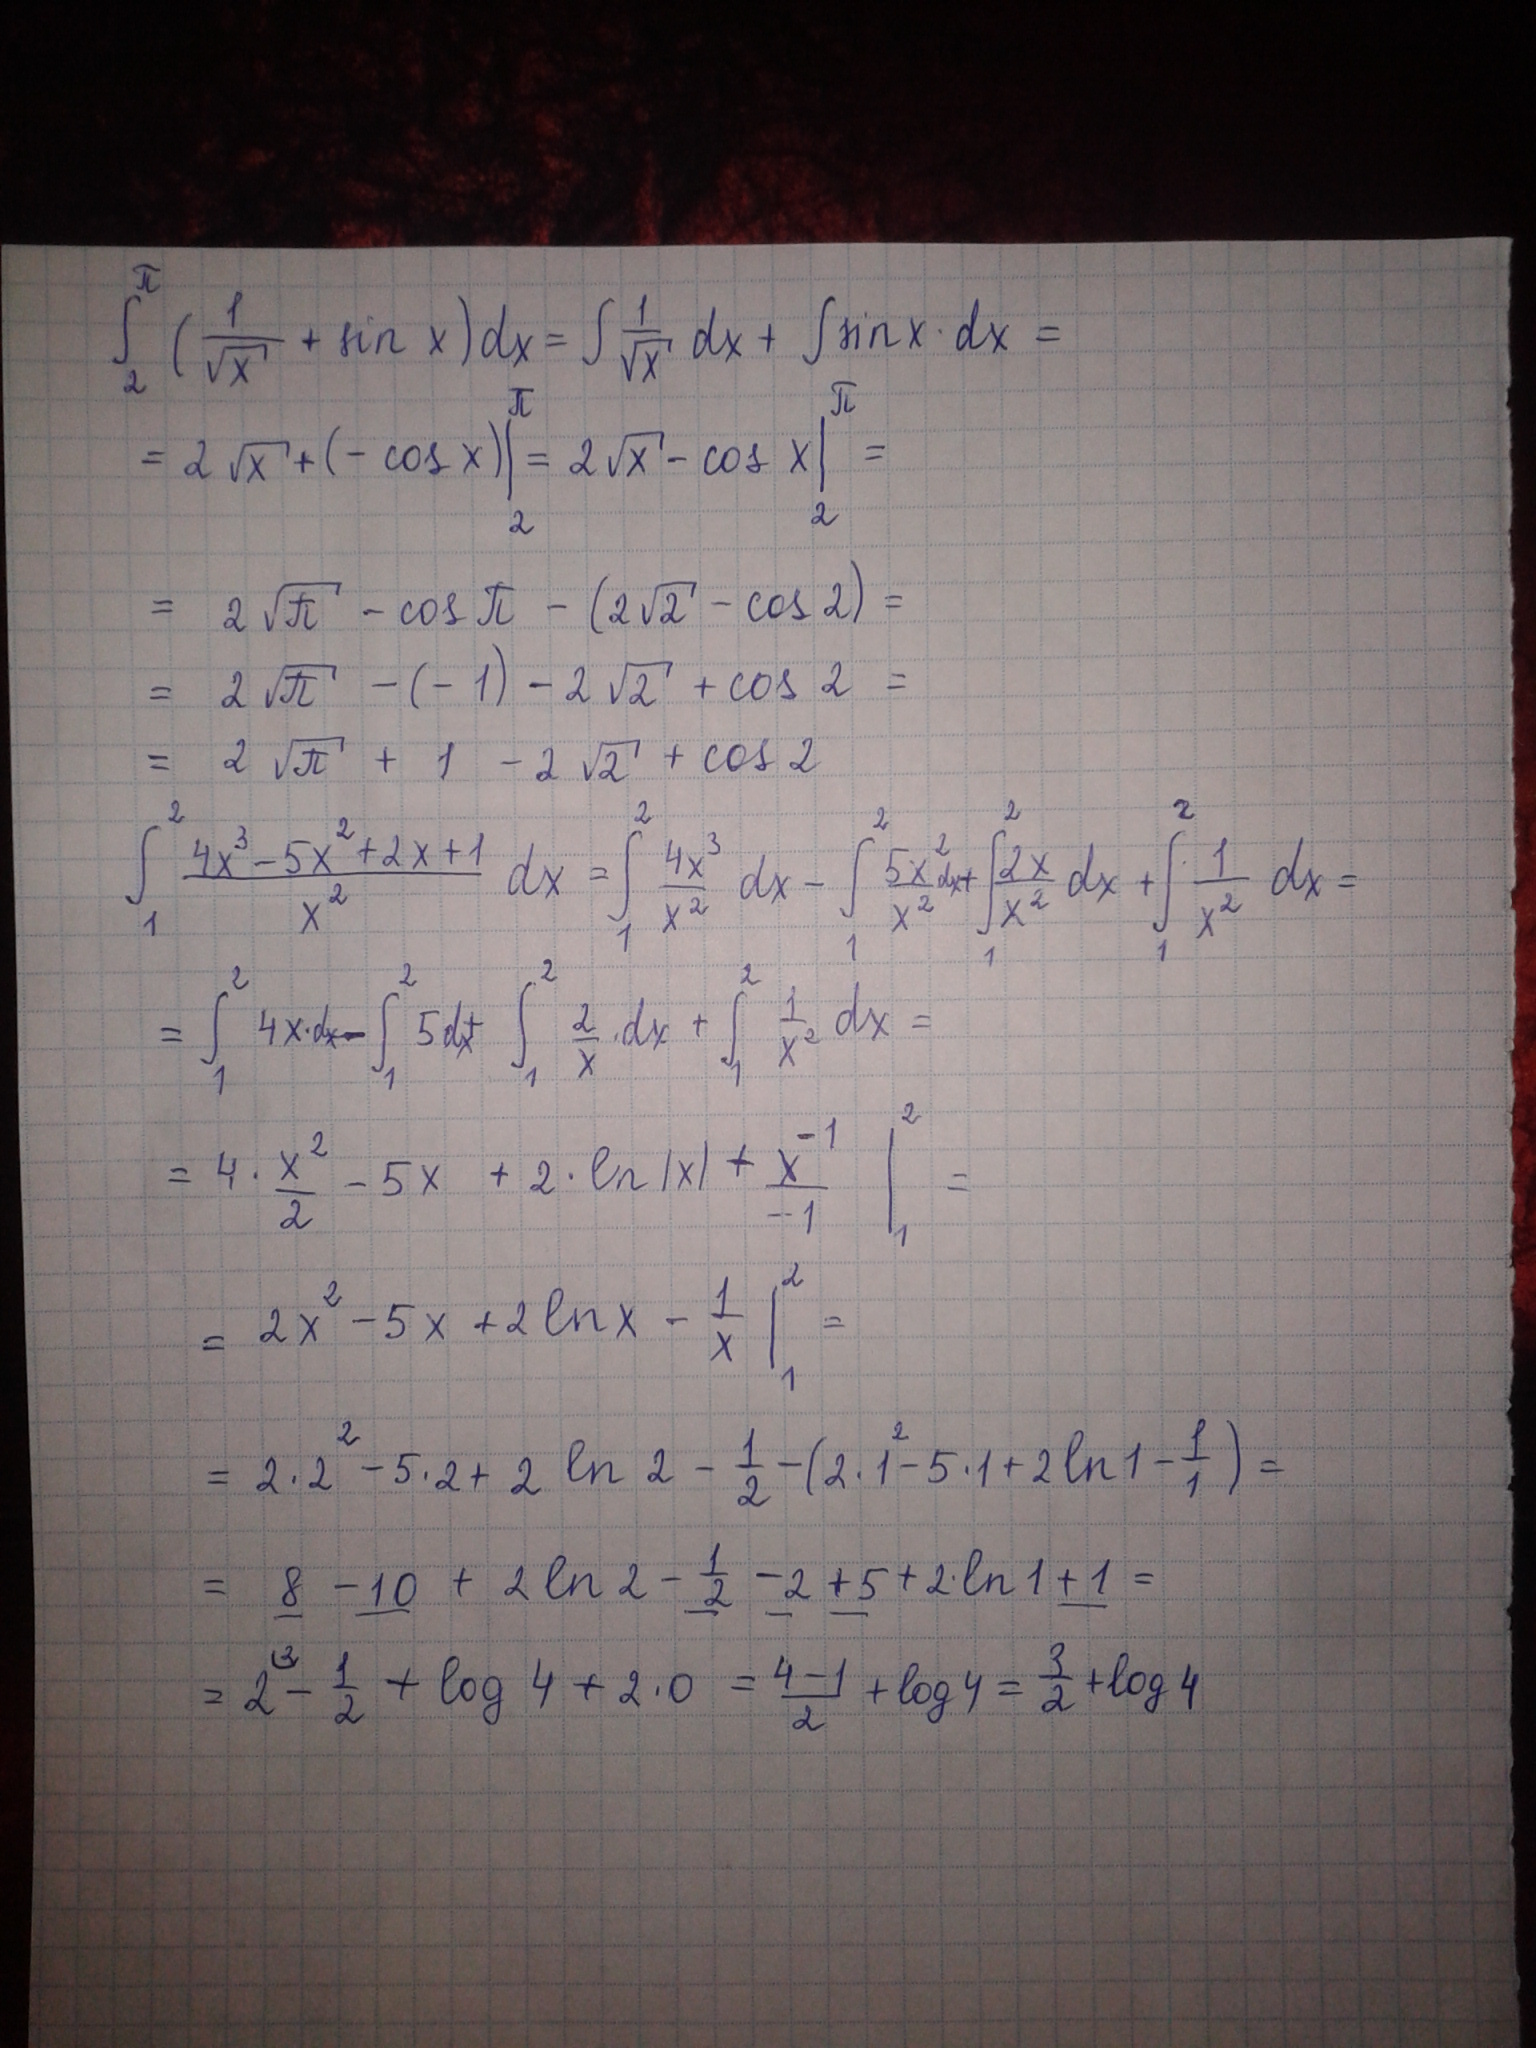 ∫₂^π (1/√x + sin x) dx = ∫ 1/√x dx + ∫ sin x · dx =
= 2√x + (- cos x) |₂^π = 2√x - cos x |₂^π =
= 2√π - cos π - (2√2 - cos 2) =
= 2√π - (-1) - 2√2 + cos 2 =
= 2√π + 1 - 2√2 + cos 2
∫₁² (4x³ - 5x² + 2x + 1)/x² dx = ∫₁² 4x³/x² dx - ∫₁² 5x²/x² dx + ∫₁² 2x/x² dx + ∫₁² 1/x² dx =
= ∫₁² 4x · dx - ∫₁² 5dx + ∫₁² 2/x · dx + ∫₁² 1/x² dx =
= 4 · x²/2 - 5x + 2 · ln |x| + x⁻¹/-1 |₁² =
= 2x² - 5x + 2 ln x - 1/x |₁² =
= 2 · 2² - 5 · 2 + 2 ln 2 - 1/2 - (2 · 1² - 5 · 1 + 2 ln 1 - 1/1) =
= 8 - 10 + 2 ln 2 - 1/2 - 2 + 5 + 2 · ln 1 + 1 =
= 2 - 1/2 + log 4 + 2 · 0 = (4 - 1)/2 + log 4 = 3/2 + log 4